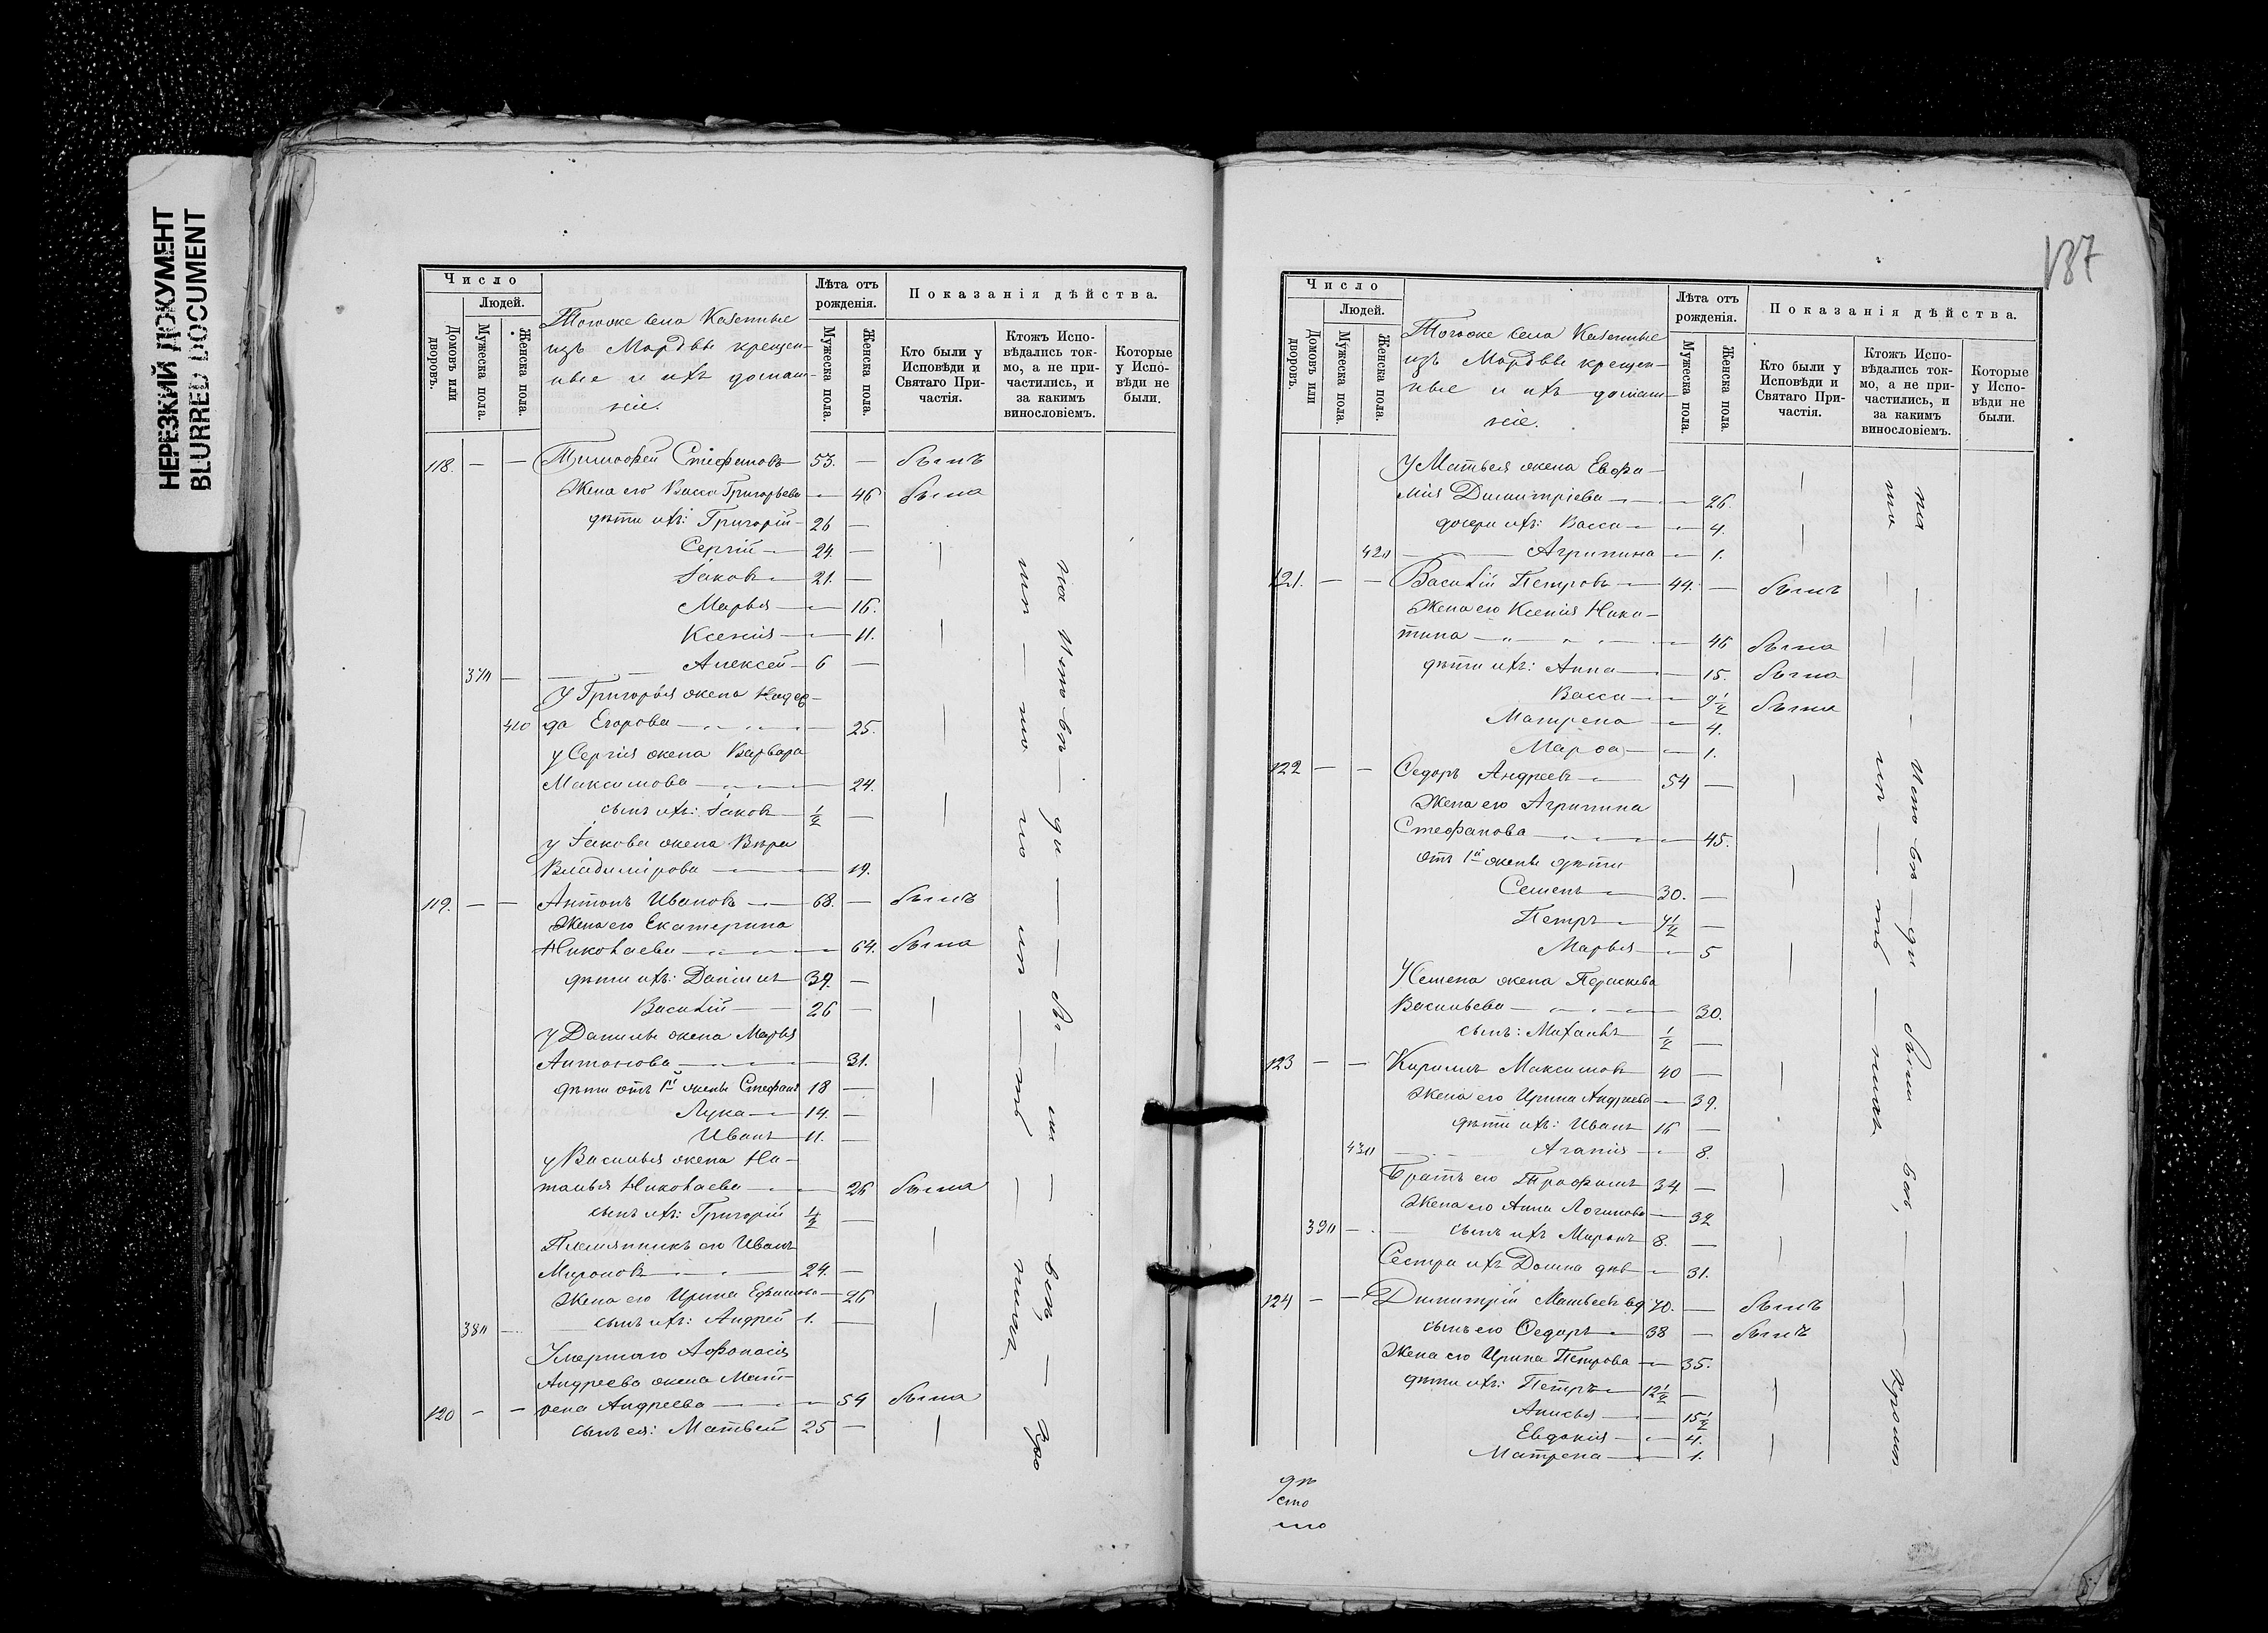 НЕРЕЗКИЙ ДОКУМЕНТ
BLURRED DOCUMENT
Число
Людей.
Домовъ или дворовъ.
Мужеска пола.
Женска пола.
Тогоже села Казенные
изъ Мордвы крещен-
ные и ихъ домаш-
ніе.
Лѣта отъ рожденія.
Мужеска пола.
Женска пола.
Показанія дѣйства.
Кто были у Исповѣди и Святаго Причастія.
Ктожъ Исповѣдались токмо, а не причастились, и за какимъ винословіемъ.
Которые у Исповѣди не были.
118. — — Тимофей Стефановъ 53. — былъ
Жена его Васса Григорьева — 46 была
дѣти ихъ: Григорій 26 —
Сергій 24. —
Іаковъ 21. —
Марья — 16.
Ксенія — 11.
370 — Алексей 6 —
У Григорья жена Надеж-
410 да Егорова — 25.
у Сергія жена Варвара
Максимова — 24.
сынъ ихъ: Іаковъ ½ —
у Іакова жена Вѣра
Владимірова — 19.
119. — — Антонъ Ивановъ 68. — былъ
Жена его Екатерина
Николаева — 64. была
дѣти ихъ: Даніилъ 39. —
Василій 26 —
У Данилы жена Марья
Антонова — 31.
дѣти отъ 1й жены Стефанъ 18 —
Лука 14. —
Иванъ 11. —
у Василья жена На-
талья Николаева — 26 была
сынъ ихъ: Григорій —
Племянникъ его Иванъ
Мироновъ 24. —
Жена его Ирина Ефимова — 26
380 — сынъ ихъ: Андрей 1. —
Умершаго Афонасія
Андреева жена Мат-
120 — — рена Андреева — 54 была
сынъ ея: Матвей 25 —
137
Число
Людей.
Домовъ или дворовъ.
Мужеска пола.
Женска пола.
Тогоже села Казенные
изъ Мордвы крещен-
ные и ихъ домаш-
ніе.
Лѣта отъ рожденія.
Мужеска пола.
Женска пола.
Показанія дѣйства.
Кто были у Исповѣди и Святаго Причастія.
Ктожъ Исповѣдались токмо, а не причастились, и за какимъ винословіемъ.
Которые у Исповѣди не были.
У Матвея жена Евфи-
мія Димитріева — 26.
дочери ихъ: Васса — 4.
420 Агрипина — 1.
121. — — Василій Петровъ 44. — былъ
Жена его Ксенія Ники-
тина — 46 была
дѣти ихъ: Анна — 15. была
Васса — 9½ была
Матрена — 4.
Марѳа — 1.
122 — — Ѳедоръ Андреевъ 54 —
Жена его Агрипина
Стефанова — 45.
отъ 1й жены дѣти
Семенъ 30. —
Петръ —
Марья — 5
У Семена жена Параскева
Васильева — 30.
сынъ: Михаилъ ½ —
123 — — Кирилъ Максимовъ 40 —
Жена его Ирина Андреева — 39.
дѣти ихъ: Иванъ 16 —
430 Агапія — 8.
Братъ его Трофимъ 34 —
Жена его Анна Логинова — 32
390 — сынъ ихъ Миронъ 8. —
Сестра ихъ Домна дѣв — 31.
124 — — Димитрій Матвеевъ вд 70. — былъ
сынъ его Ѳедоръ 38 — былъ
Жена его Ирина Петрова — 35.
дѣти ихъ: Петръ 12½ —
Анисья — 15½
Евдокія — 4.
Матрена — 1.
дѣ
сто